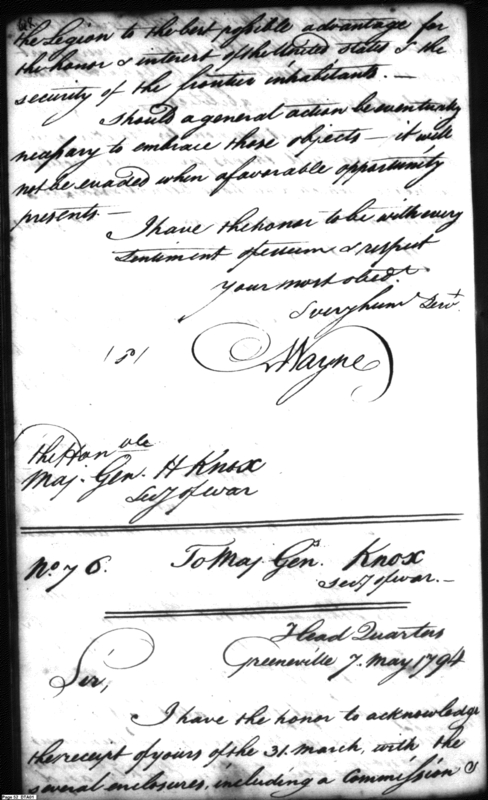 the Legion to the best possible advantage for
the honor & interest of the United States & the
security of the frontier inhabitants. —
Should a general action be eventually
necessary to embrace those objects — it will
not be evaded when a favorable opportunity
presents —
I have the honor to be with every
Sentiment of esteem & respect
your most obedt.
& very huml Servt
(S)
AWayne
the Hon ble
Maj. Gen. H Knox
Secy of war
No. 76.
To Maj. Genl. Knox
Secy of war. —
Head Quarters
Greeneville 7. May 1794
Sir,
I have the honor to acknowledge
the receipt of yours of the 31. March, with the
several enclosures, including a Commission &